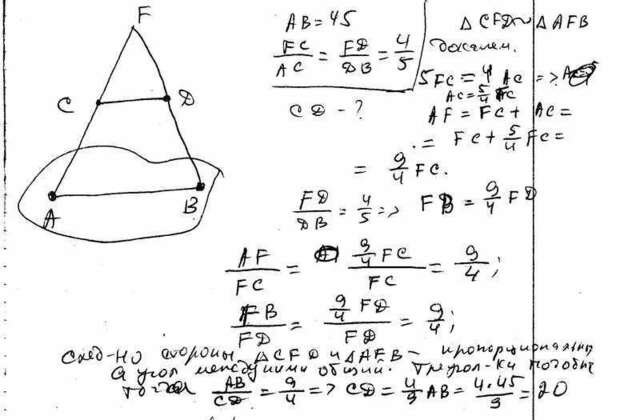 F
C
D
A
B
AB = 45
FC/AC = FD/DB = 4/5
CD - ?
△CFD ∼ △AFB
докажем.
5FC = 4AC =>
AC = 5/4 FC
AF = FC + AC =
= FC + 5/4 FC =
= 9/4 FC.
FD/DB = 4/5 => FB = 9/4 FD
AF/FC = 9/4 FC/FC = 9/4;
FB/FD = 9/4 FD/FD = 9/4;
След-но стороны △CFD и △AFB - пропорциональны
а угол между ними общий. Треугол-ки подобны
тогда AB/CD = 9/4 => CD = 4/9 AB = 4·45/9 = 20